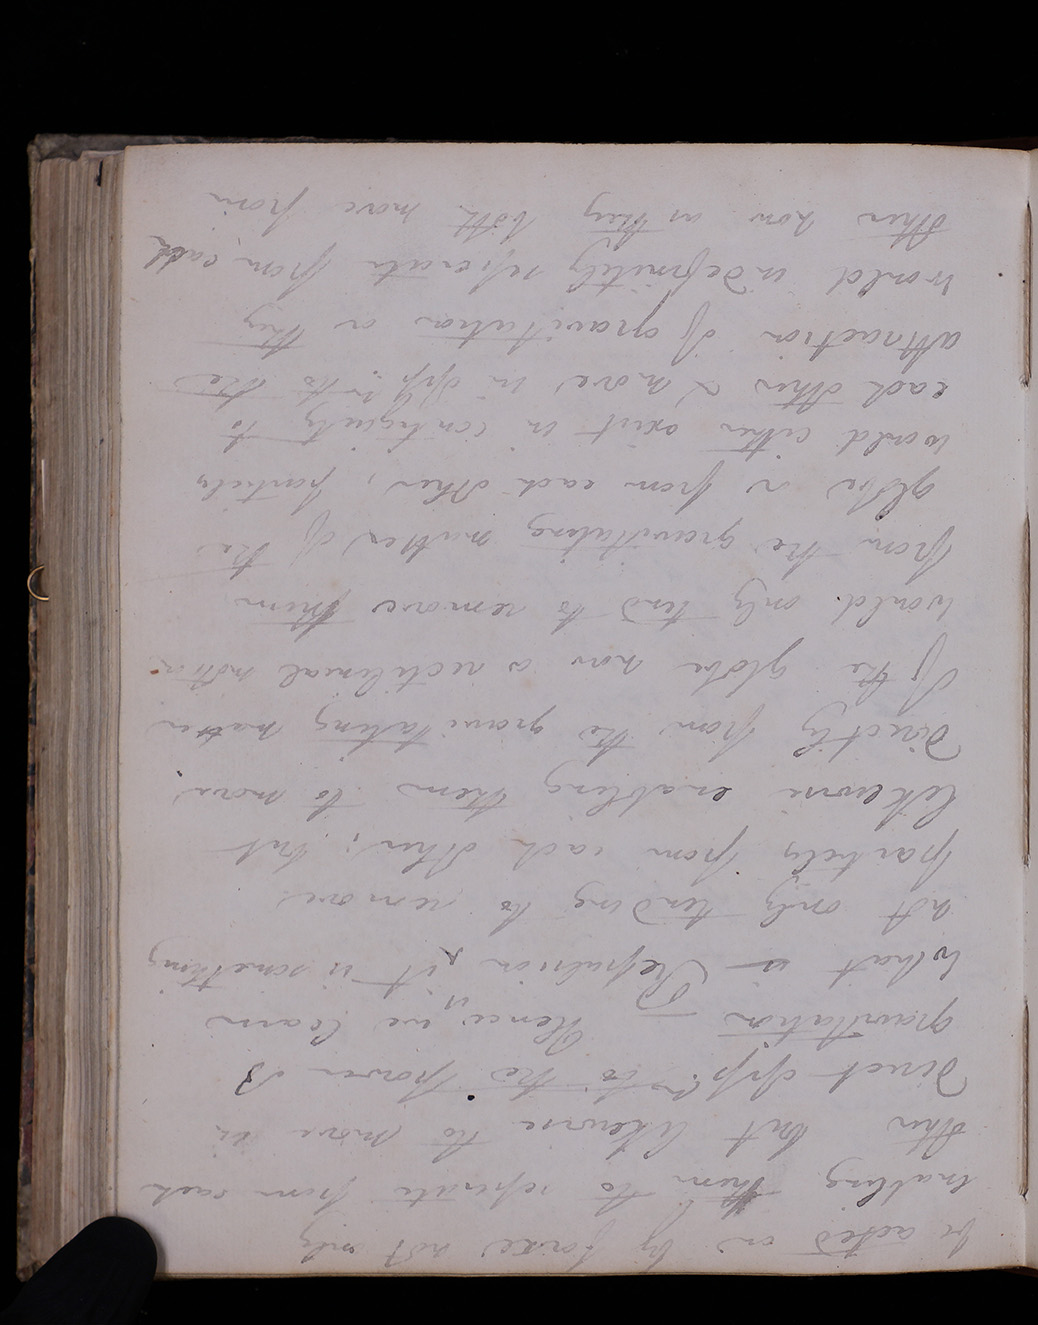 be acted on by force not only
enabling them to seperate from each
other but likewise to move in
direct oppn to the power of
gravitation Hence, we learn
what is Repulsion, it is something
not only tending to remove
particles from each other; but
likewise enabling them to move
directly from the gravitating matter
of the globe now a rectilineal motion
would only tend to remove them
from the gravitating matter of the
globe or from each other, particles
would either exist in contiguity to
each other & move in oppn to the
attraction of gravitation or they
would indefinitely seperate from each
other now as they both move from